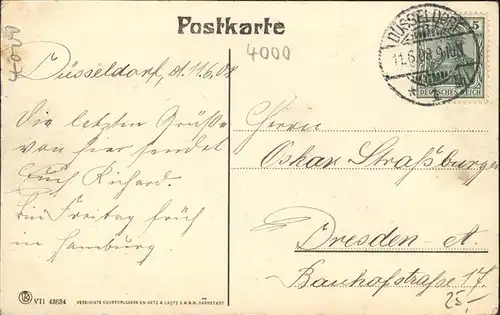 Postkarte
4000
4000
Düsseldorf, d. 11.6.08
Die letzten Grüße
von hier sendet
Euch Richard.
Bin Freitag früh
in Hamburg
Herrn
Oskar Straßburger
Dresden-A.
Bauhofstraße 17.
25,-
DÜSSELDORF
11.6.08. 9-10N
5
DEUTSCHES REICH
VII 43634
VEREINIGTE KUNSTDRUCKEREIEN METZ & LAUTZ G.M.B.H. DARMSTADT.